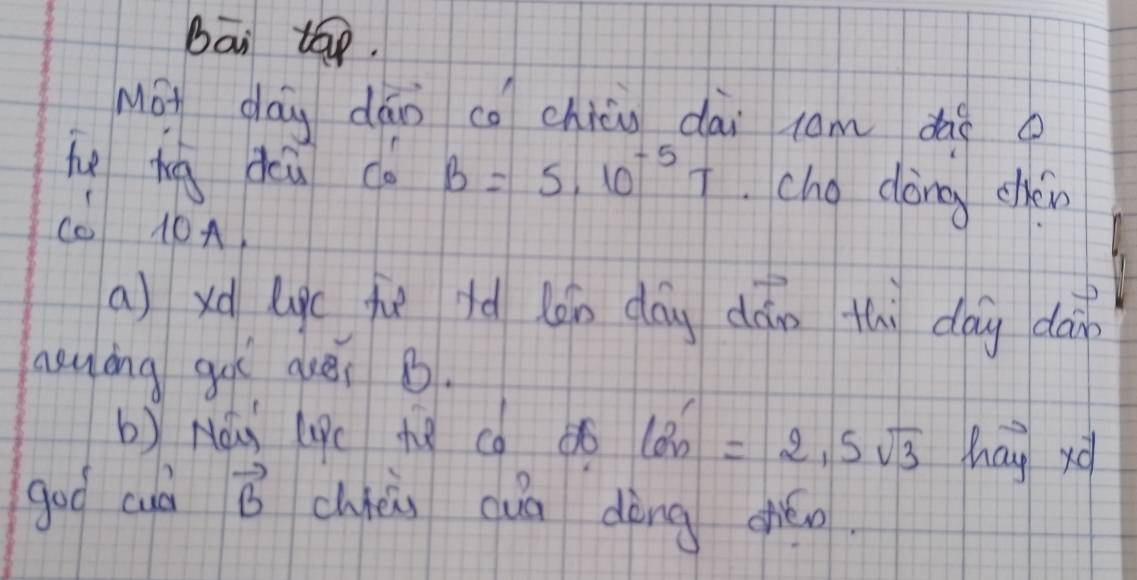 Bài tập.
Một dây dẫn có chiều dài 10m đặt
từ trg đều có B = 5.10⁻⁵ T. Cho dòng điện
có 10A.
a) xđ lực từ td lên dây dẫn thì dây dẫn
vuông góc với B.
b) Nếu lực từ có độ lớn = 2,5√3 hãy xđ
góc của B⃗ chiều của dòng điện.